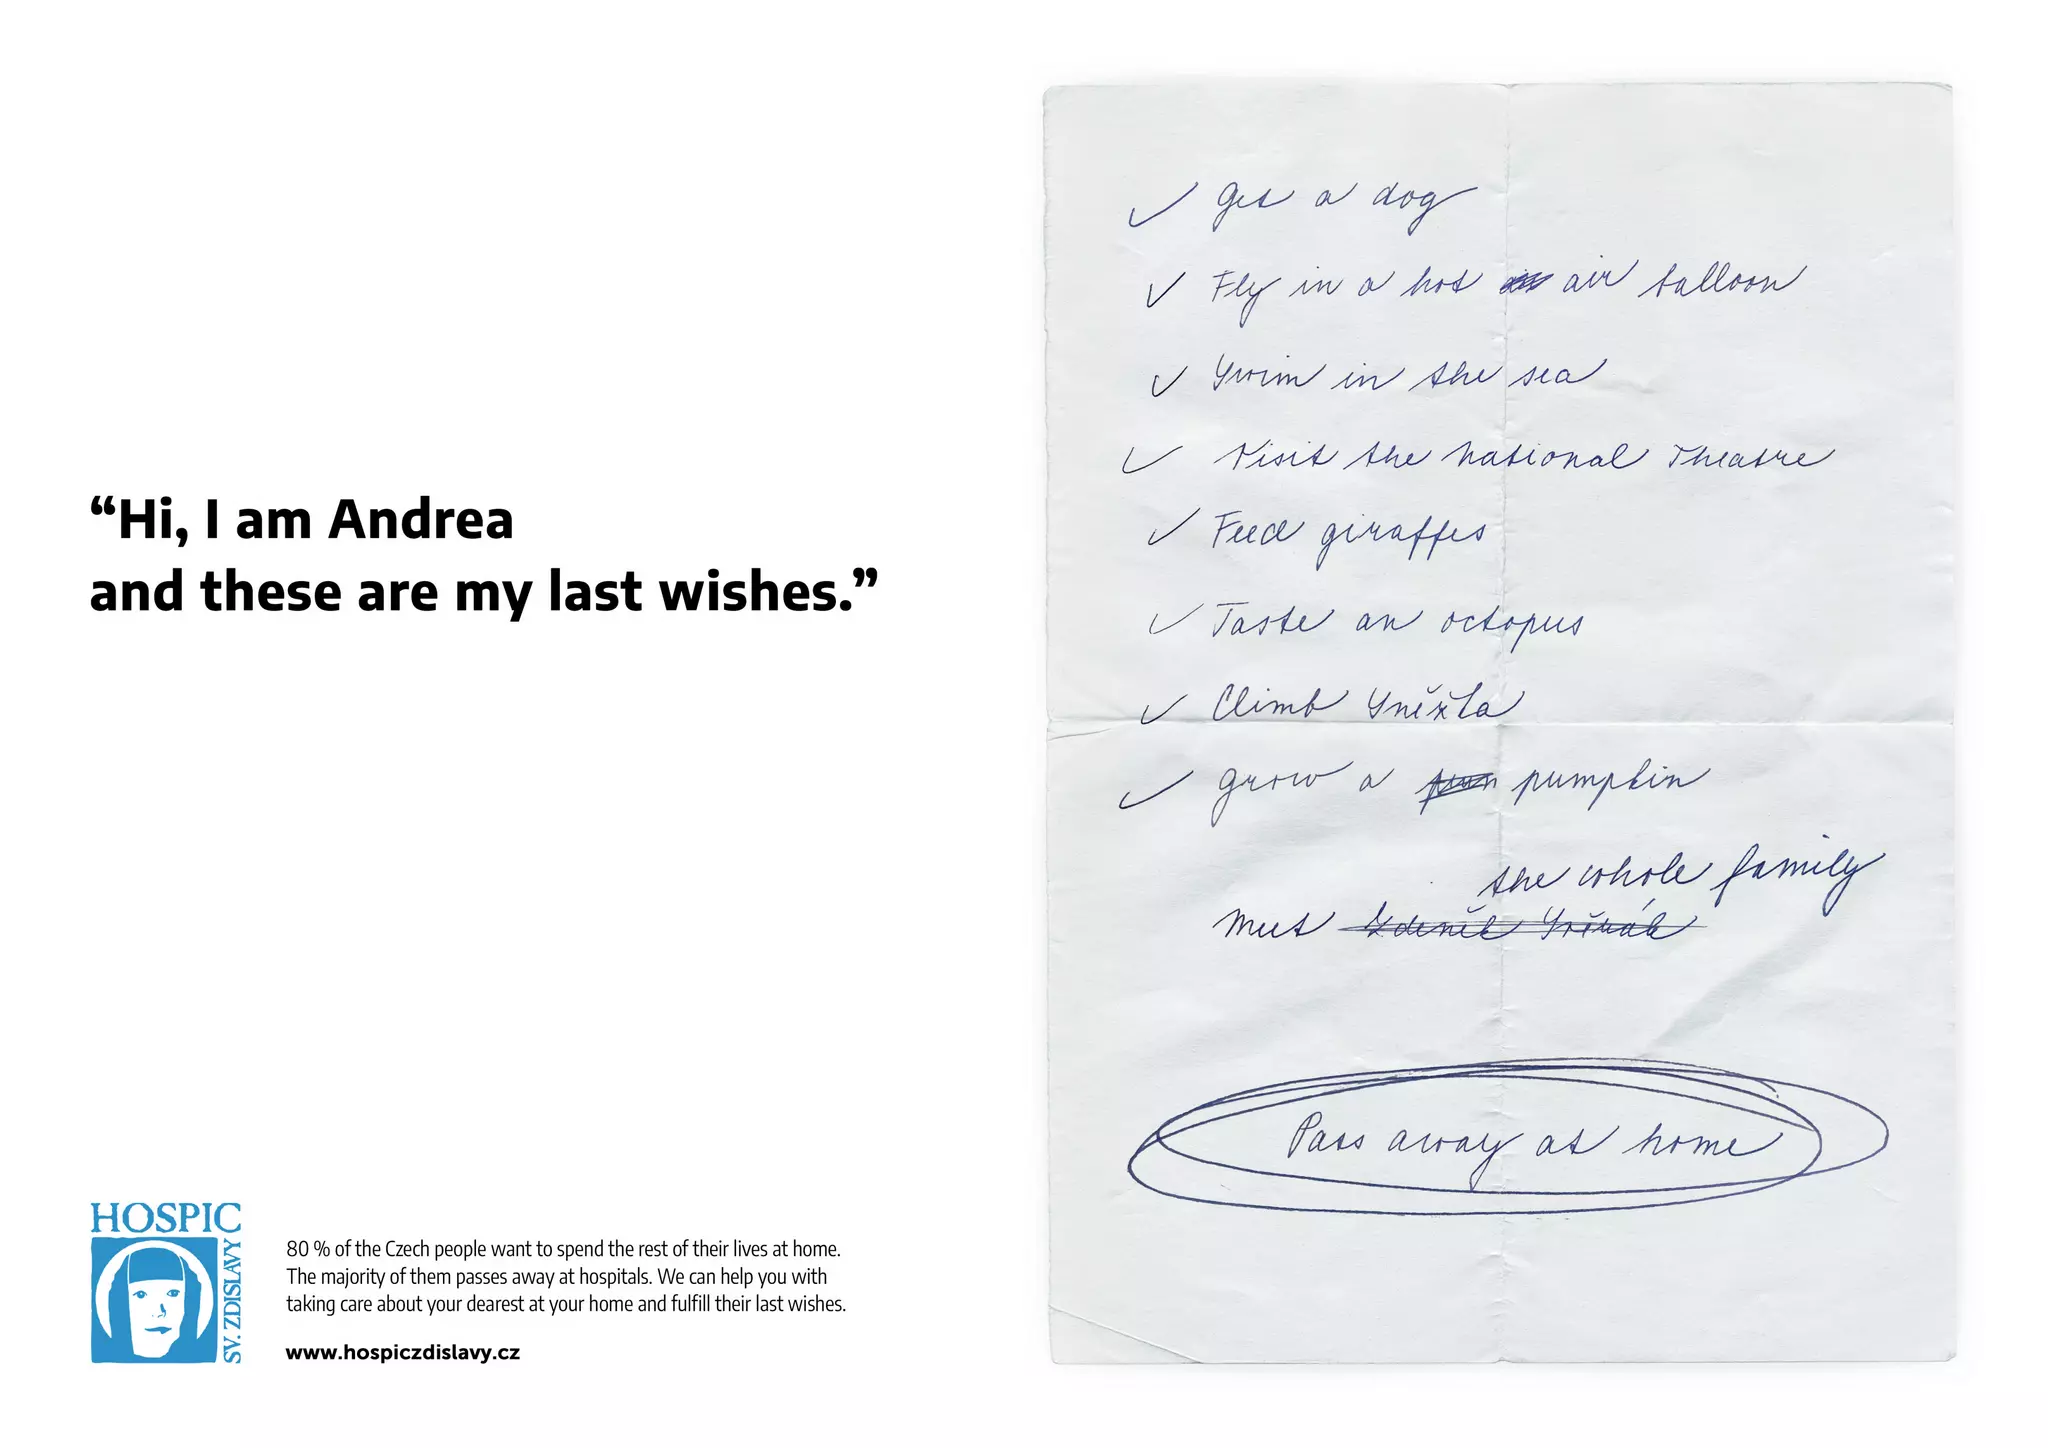 “Hi, I am Andrea
and these are my last wishes.”
✓ Get a dog
✓ Fly in a hot air balloon
✓ Swim in the sea
✓ Visit the National Theatre
✓ Feed giraffes
✓ Taste an octopus
✓ Climb Sněžka
✓ Grow a pumpkin
the whole family
Meet Zdeněk Svěrák
Pass away at home
HOSPIC
SV. ZDISLAVY
80 % of the Czech people want to spend the rest of their lives at home.
The majority of them passes away at hospitals. We can help you with
taking care about your dearest at your home and fulfill their last wishes.
www.hospiczdislavy.cz